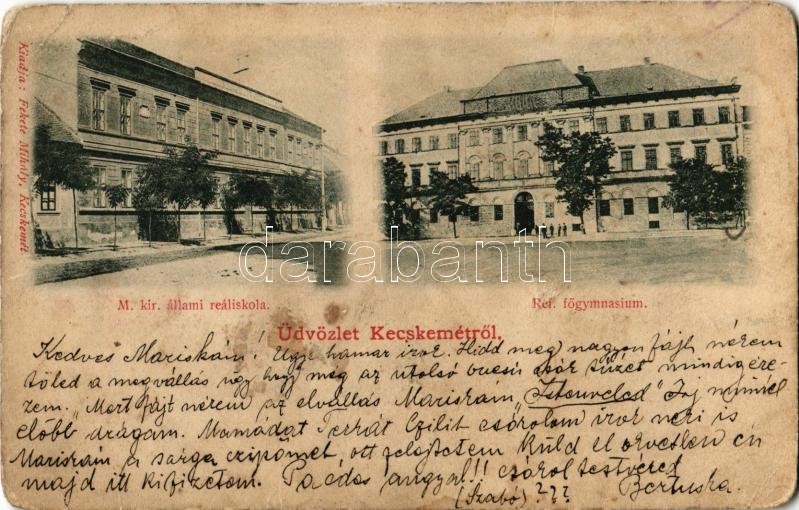 Kiadja: Fekete Mihály, Kecskemét
M. kir. állami reáliskola.
Ref. főgymnasium.
darabanth
Üdvözlet Kecskemétről.
Kedves Mariskám! Ugye hamar irok. Hidd meg nagyon fájt nézem
tőled a megvállás úgy hogy még az utolsó tüzét mindig ére-
zem. "Mert fájt nézem az elvállás Mariskám" "Isten veled" Irj minnél
előbb drágám. Mamádat Terkát Czilit csókolom irok neki is
Mariskám, a sarga czipőmet, ott felejtetem küld el én
majd itt kifizetem. Pa édes angyal!! csókol testvéred
(Szabó)??? Bertuska.